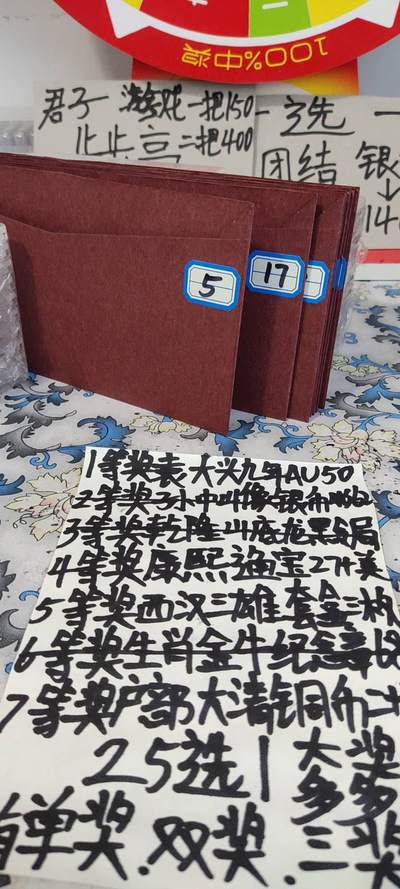 100%中奖
君子一游戏一把150
二把400
选
团结
银
14
5
17
1等奖表大头九年AU50
2等奖孙小中山像银币
3等奖乾隆山底龙黑钱局
4等奖康熙通宝27美
5等奖西汉三雄套盒三枚
6等奖生肖金牛纪念
7等奖户部大清铜币二
25选1
大奖
多多
单奖.双奖.三奖